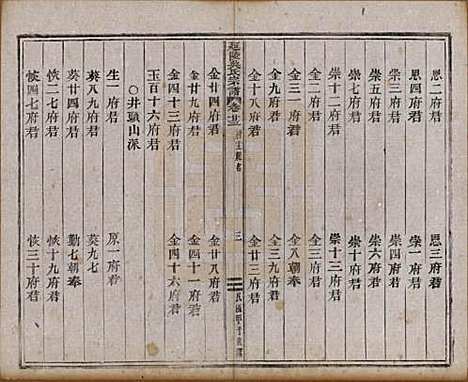 恩二府君 恩三府君
恩四府君 崇三府君
崇五府君 崇六府君
崇七府君
崇十二府君 崇十三府君
全二府君 全三府君
全九府君 全八朝奉
全十八府君 全廿三府君
吳氏宗譜
三
金廿四府君 金廿八府君
金廿九府君 金四十一府君
金四十三府君 金四十六府君
玉百十六府君
○井頭山派
生一府君 原一府君
葵八九府君 葵九七
葵廿四府君 勤七朝奉
恢二府君 恢十九府君
恢四七府君 恢三十府君